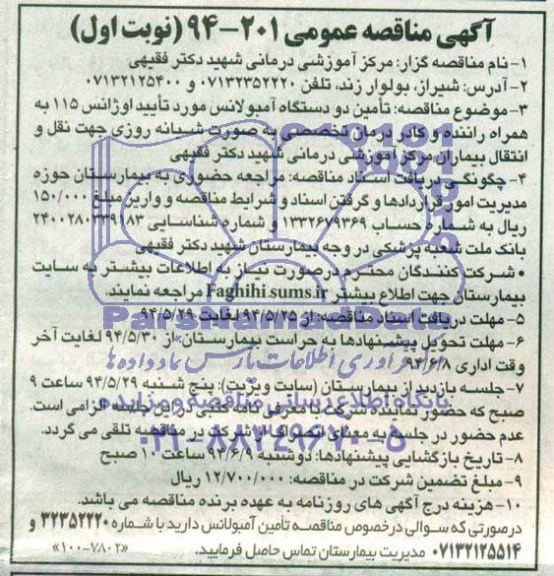 آگهی مناقصه عمومی ۲۰۱-۹۴ (نوبت اول)
۱-نام مناقصه گزار: مرکز آموزشی درمانی شهید دکتر فقیهی
۲-آدرس: شیراز، بولوار زند، تلفن ۰۷۱۳۲۳۵۲۲۲۰ و ۰۷۱۳۲۱۲۵۴۰۰
۳-موضوع مناقصه: تأمین دو دستگاه آمبولانس مورد تأیید اوژانس ۱۱۵ به
همراه راننده و کادر درمان تخصصی به صورت شبانه روزی جهت نقل و
انتقال بیماران مرکز آموزشی درمانی شهید دکتر فقیهی
۴- چگونگی دریافت اسناد مناقصه: مراجعه حضوری به بیمارستان حوزه
مدیریت امور قراردادها و گرفتن اسناد و شرایط مناقصه و واریز مبلغ ۱۵۰/۰۰۰
ریال به شماره حساب ۱۳۳۲۶۷۹۳۶۹ و شماره شناسایی ۲۴۰۰۲۸۰۳۳۹۱۸۳
بانک ملت شعبه پزشکی در وجه بیمارستان شهید دکتر فقیهی
• شرکت کنندگان محترم درصورت نیاز به اطلاعات بیشتر به سایت
بیمارستان جهت اطلاع بیشتر Faghihi.sums.ir مراجعه نمایند.
۵- مهلت دریافت اسناد مناقصه: از ۹۴/۵/۲۵ لغایت ۹۴/۵/۲۹
۶- مهلت تحویل پیشنهادها به حراست بیمارستان: از ۹۴/۵/۳۰ لغایت آخر
وقت اداری ۹۴/۶/۸
۷- جلسه بازدید از بیمارستان (سایت ویزیت): پنج شنبه ۹۴/۵/۲۹ ساعت ۹
صبح که حضور نماینده شرکت با معرفی نامه کتبی در این جلسه الزامی است.
عدم حضور در جلسه به معنای انصراف از شرکت در مناقصه تلقی می گردد.
۸- تاریخ بازگشایی پیشنهادها: دوشنبه ۹۴/۶/۹ ساعت ۱۰ صبح
۹- مبلغ تضمین شرکت در مناقصه: ۱۲/۷۰۰/۰۰۰ ریال
۱۰- هزینه درج آگهی های روزنامه به عهده برنده مناقصه می باشد.
درصورتی که سوالی درخصوص مناقصه تأمین آمبولانس دارید با شماره ۳۲۳۵۲۲۲۰ و
۰۷۱۳۲۱۲۵۵۱۴ مدیریت بیمارستان تماس حاصل فرمایید. «۱۰۰-۷۸۰۲»
ParsNamadData
فرآوری اطلاعات پارس نماد داده ها
پایگاه اطلاع رسانی مناقصه و مزایده
۰۲۱-۸۸۳۴۹۶۷۰-۵